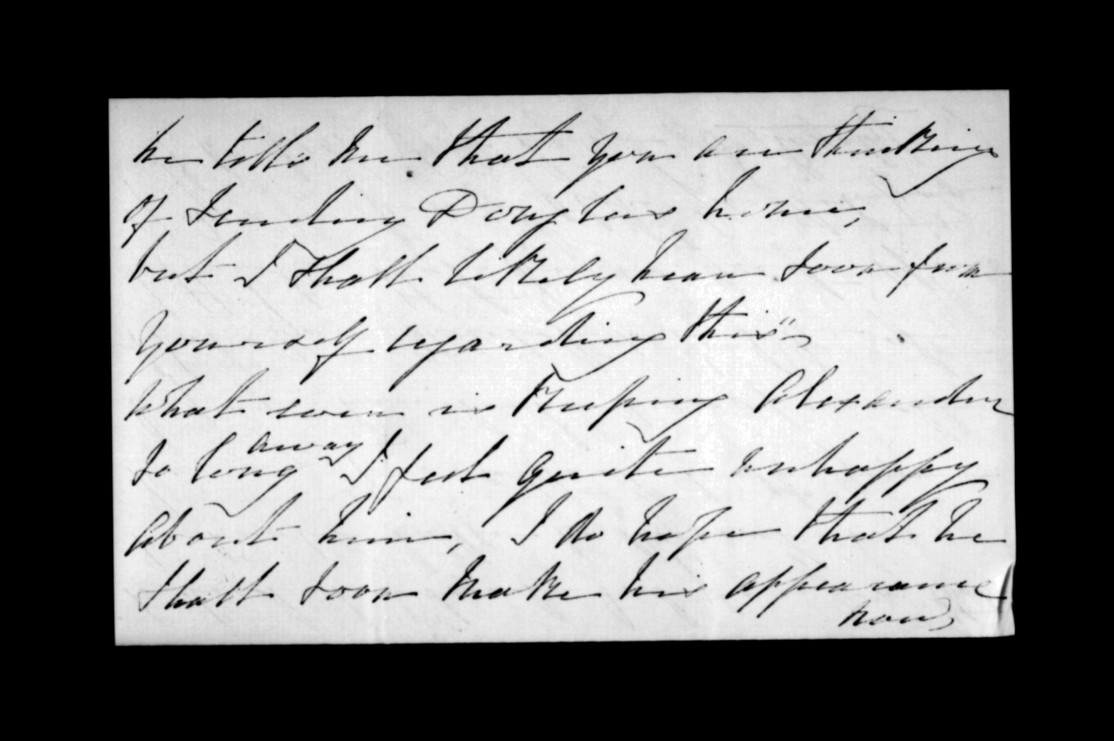 he tells me that you are thinking
of sending Douglas home,
but I shall likely hear soon from
yourself regarding this"
What ever is keeping Alexander
so long away I feel quite unhappy
about him, I do hope that he
shall soon make his appearance
now